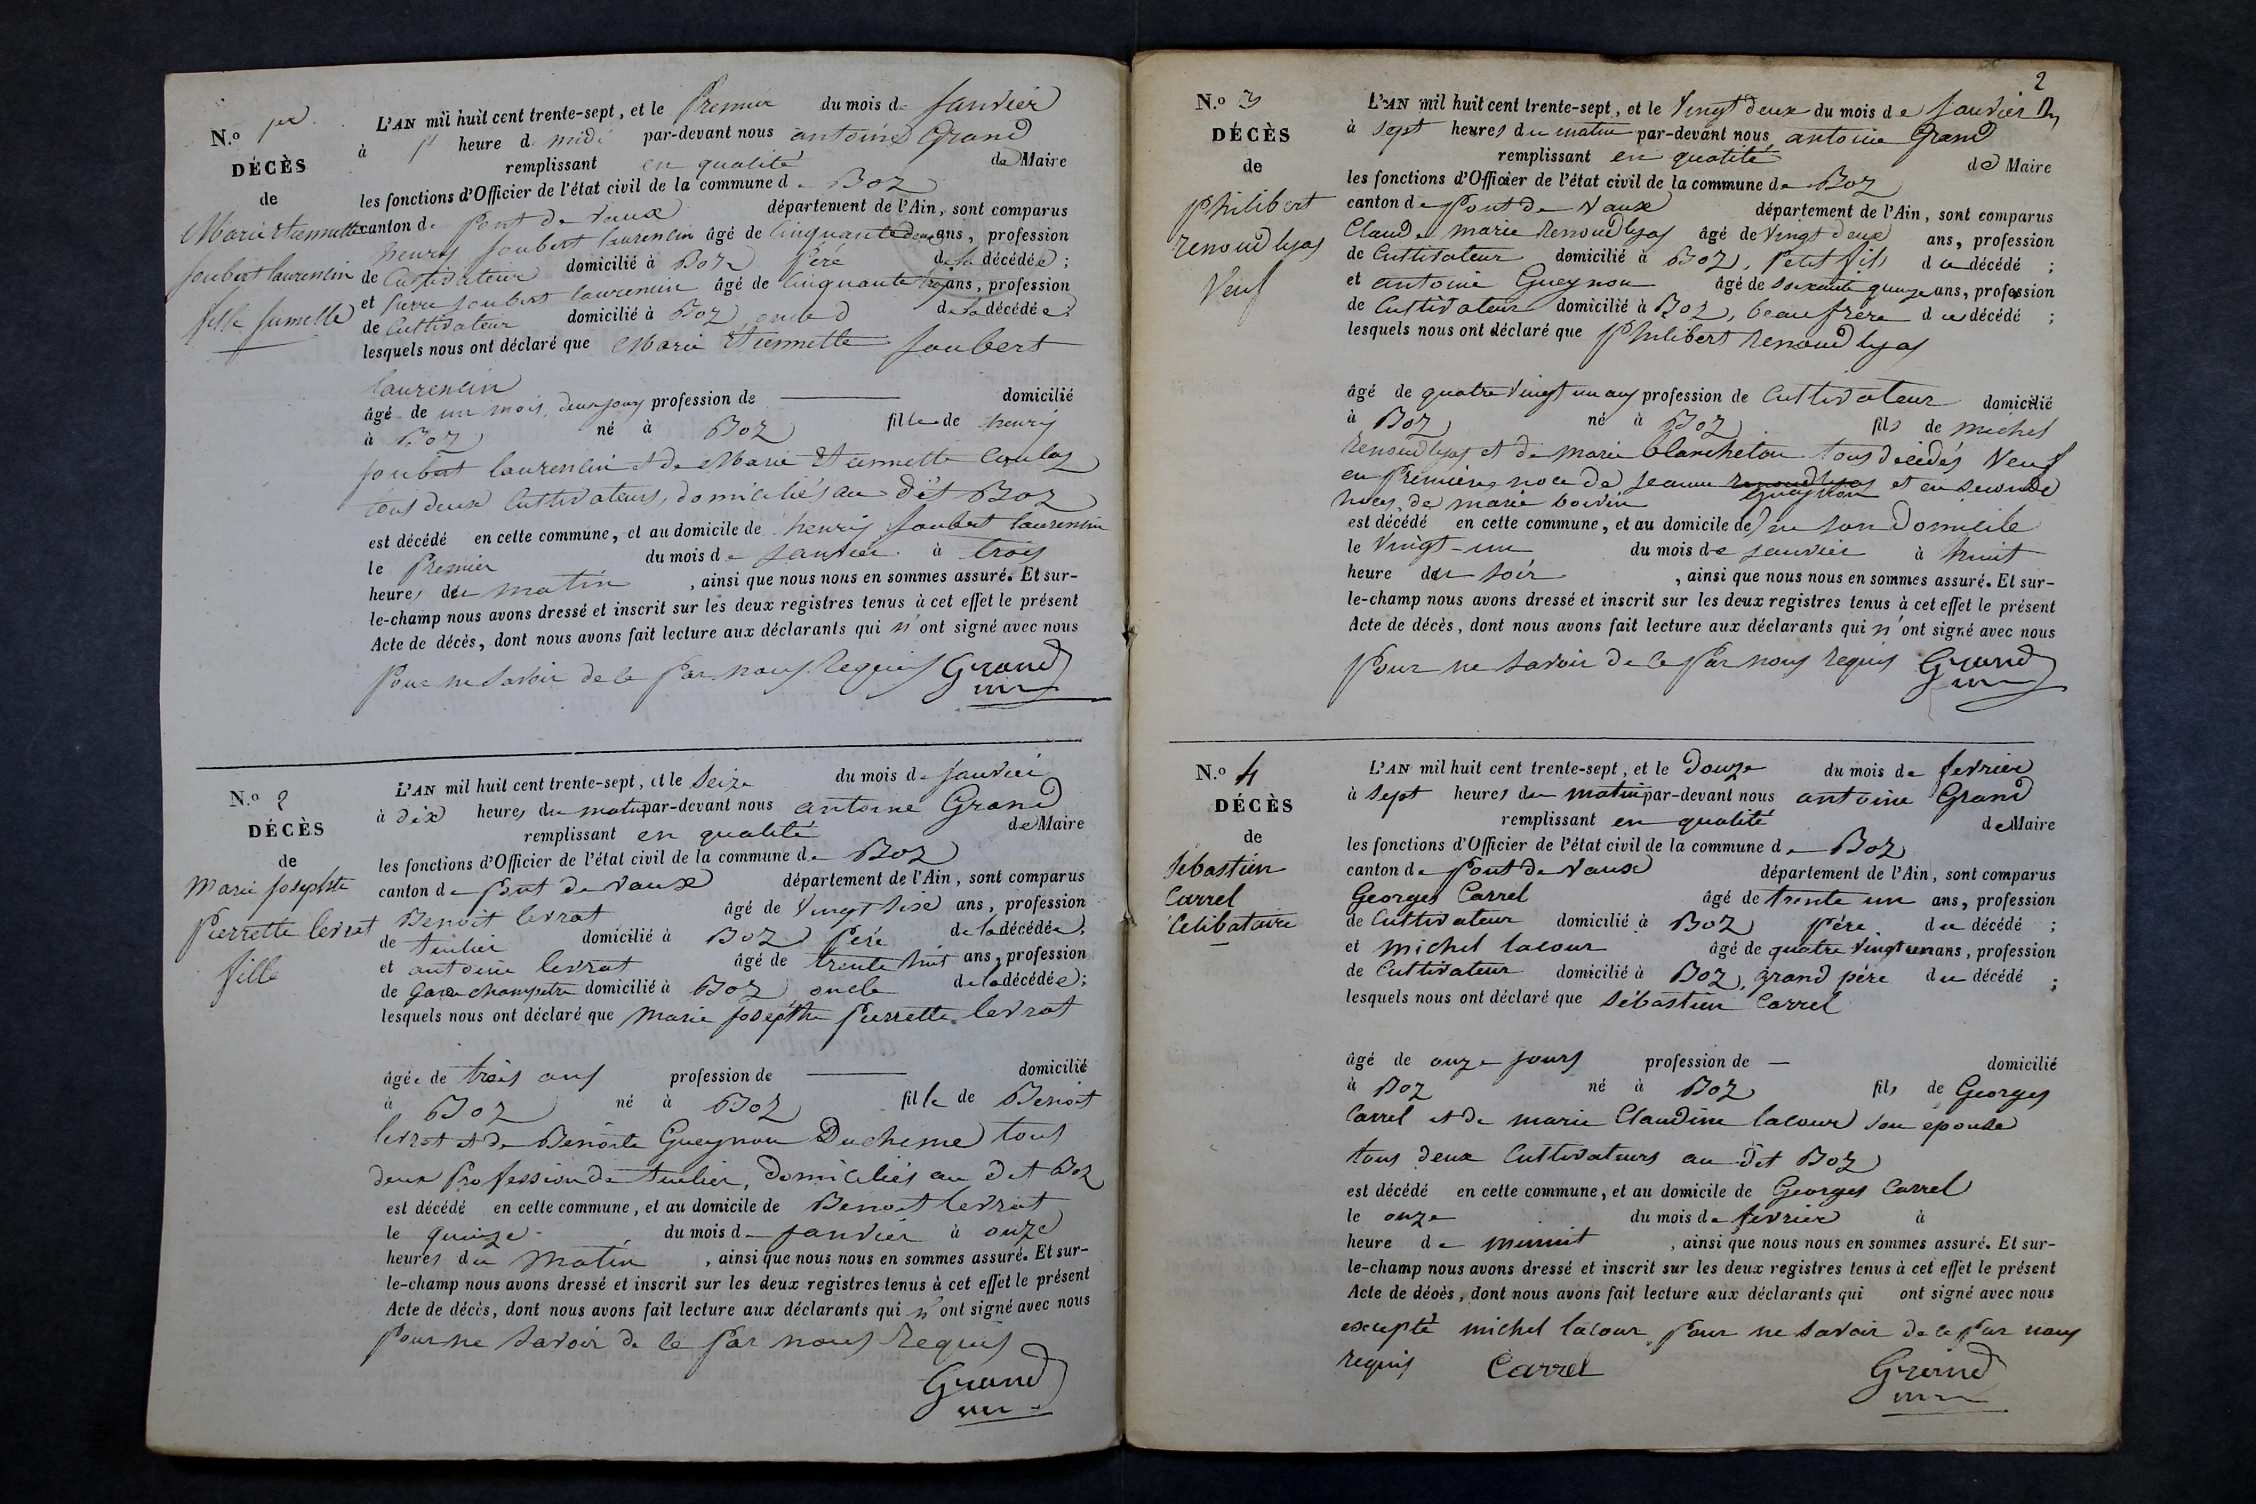 N.o 1er
DÉCÈS
de
Marie Etiennette
Joubert laurencin
fille jumelle
L'AN mil huit cent trente-sept, et le Premier du mois de Janvier
à 1 heure de midi par-devant nous antoine Grand
remplissant en qualité de Maire
les fonctions d'Officier de l'état civil de la commune de Boz
canton de Pont de Vaux département de l'Ain, sont comparus
henry Joubert laurencin âgé de Cinquante deux ans, profession
de Cultivateur domicilié à Boz Père de la décédée ;
et Pierre Joubert laurencin âgé de Cinquante trois ans, profession
de Cultivateur domicilié à Boz oncle de la décédée ;
lesquels nous ont déclaré que Marie Etiennette Joubert
laurencin
âgé de un mois deux jours profession de — domicilié
à Boz né à Boz fille de henry
Joubert laurencin et de Marie Etiennette Coulas
tous deux Cultivateurs, domiciliés au dit Boz
est décédé en cette commune, et au domicile de henry Joubert laurencin
le Premier du mois de Janvier à trois
heures du matin , ainsi que nous nous en sommes assuré. Et sur-
le-champ nous avons dressé et inscrit sur les deux registres tenus à cet effet le présent
Acte de décès, dont nous avons fait lecture aux déclarants qui n'ont signé avec nous
Pour ne savoir de ce Par nous Requis Grand
N.o 2
DÉCÈS
de
Marie Josephte
Pierrette levrat
fille
L'AN mil huit cent trente-sept, et le Seize du mois de Janvier
à dix heures du matin par-devant nous antoine Grand
remplissant en qualité de Maire
les fonctions d'Officier de l'état civil de la commune de Boz
canton de Pont de Vaux département de l'Ain, sont comparus
Benoit levrat âgé de Vingt Six ans, profession
de tuilier domicilié à Boz Père de la décédée ;
et antoine levrat âgé de trente huit ans, profession
de Garde champetre domicilié à Boz oncle de la décédée ;
lesquels nous ont déclaré que Marie Josepthe Pierrette levrat
âgée de trois ans profession de — domicilié
à Boz né à Boz fille de Benoit
levrat et de Benoite Gueynon Ducheme tous
deux Profession de tuilier, domiciliés au dit Boz
est décédé en cette commune, et au domicile de Benoit levrat
le quinze du mois de Janvier à onze
heures du Matin , ainsi que nous nous en sommes assuré. Et sur-
le-champ nous avons dressé et inscrit sur les deux registres tenus à cet effet le présent
Acte de décès, dont nous avons fait lecture aux déclarants qui n'ont signé avec nous
Pour ne Savoir de ce Par nous Requis
Grand
2
N.o 3
DÉCÈS
de
Philibert
renoud lyas
Veuf
L'AN mil huit cent trente-sept, et le Vingt deux du mois de Janvier
à Sept heures du matin par-devant nous antoine Grand
remplissant en qualité de Maire
les fonctions d'Officier de l'état civil de la commune de Boz
canton de Pont de Vaux département de l'Ain, sont comparus
Claude marie Renoud lyas âgé de Vingt deux ans, profession
de Cultivateur domicilié à Boz, Petit fils du décédé ;
et antoine Gueynon âgé de Soixante quinze ans, profession
de Cultivateur domicilié à Boz, beau frère du décédé ;
lesquels nous ont déclaré que Philibert Renoud lyas
âgé de quatre Vingt un ans profession de Cultivateur domicilié
à Boz né à Boz fils de michel
Renoud lyas et de marie blancheton tous décédés Veuf
en Première noce de jeanne renoud lyas Gueynon et en seconde
noces, de marie boivin
est décédé en cette commune, et au domicile de en son Domicile
le Vingt-un du mois de janvier à huit
heure du soir , ainsi que nous nous en sommes assuré. Et sur-
le-champ nous avons dressé et inscrit sur les deux registres tenus à cet effet le présent
Acte de décès, dont nous avons fait lecture aux déclarants qui n'ont signé avec nous
Pour ne savoir de ce Par nous requis Grand
N.o 4
DÉCÈS
de
Sébastien
Carrel
Celibataire
L'AN mil huit cent trente-sept, et le douze du mois de fevrier
à Sept heures du matin par-devant nous antoine Grand
remplissant en qualité de Maire
les fonctions d'Officier de l'état civil de la commune de Boz
canton de Pont de Vaux département de l'Ain, sont comparus
Georges Carrel âgé de trente un ans, profession
de Cultivateur domicilié à Boz Père du décédé ;
et michel lacour âgé de quatre Vingt un ans, profession
de Cultivateur domicilié à Boz, grand père du décédé ;
lesquels nous ont déclaré que Sébastien Carrel
âgé de onze jours profession de — domicilié
à Boz né à Boz fils de Georges
Carrel et de marie Claudine lacour son epouse
tous deux Cultivateurs au dit Boz
est décédé en cette commune, et au domicile de Georges Carrel
le onze du mois de fevrier à
heure de minuit , ainsi que nous nous en sommes assuré. Et sur-
le-champ nous avons dressé et inscrit sur les deux registres tenus à cet effet le présent
Acte de décès, dont nous avons fait lecture aux déclarants qui ont signé avec nous
excepté michel lacour Pour ne savoir de ce Par nous
requis Carrel Grand